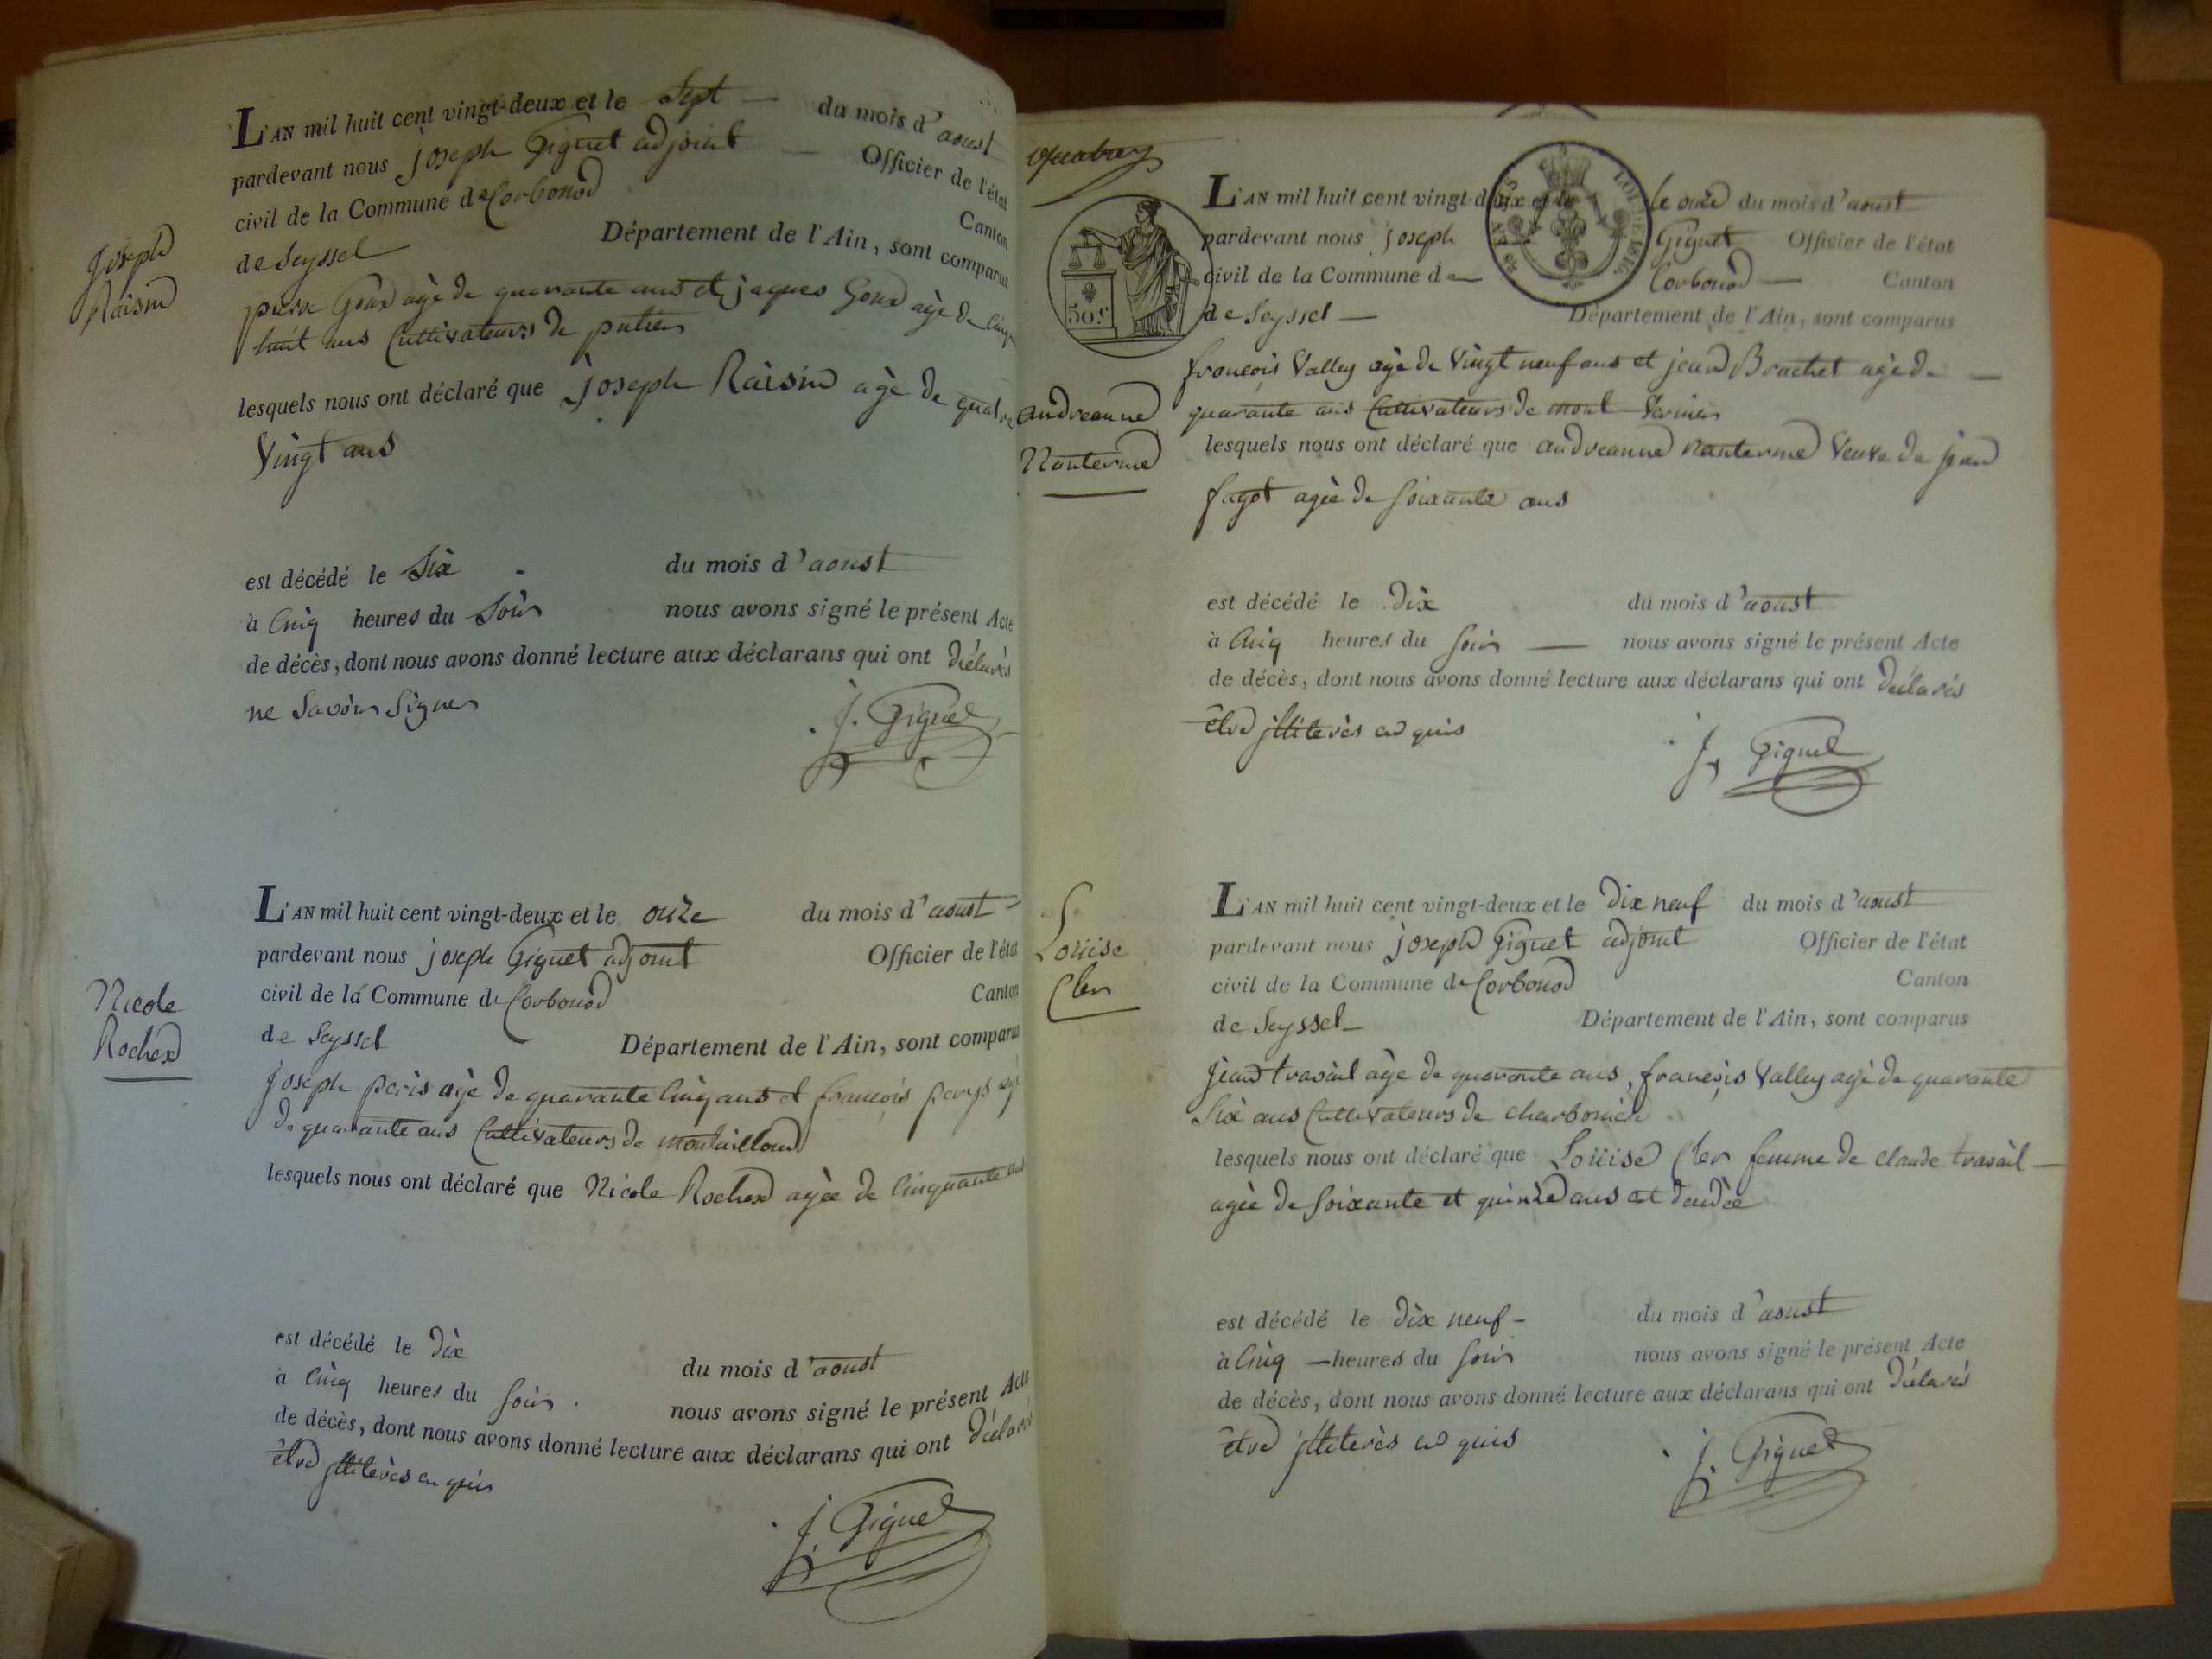 L'AN mil huit cent vingt-deux et le Sept — du mois d'aoust
pardevant nous joseph Giguet adjoint — Officier de l'état
civil de la Commune de Corbonod Canton
de Seyssel Département de l'Ain, sont comparus
Joseph
Raisin
pierre Goux agè de quarante ans et jaques Goux agè de Cinq
huit ans Cultivateurs de putier
lesquels nous ont déclaré que joseph Raisin agè de quatre
Vingt ans
est décédé le Six du mois d'aoust
à Cinq heures du Soir nous avons signé le présent Acte
de décès, dont nous avons donné lecture aux déclarans qui ont déclarés
ne Savoir Signer
J. Giguet
L'AN mil huit cent vingt-deux et le onze du mois d'aoust
pardevant nous joseph Giguet adjoint Officier de l'état
civil de la Commune de Corbonod Canton
de Seyssel Département de l'Ain, sont comparus
Nicole
Rochex
Joseph peris agè de quarante Cinq ans et françois perys agè
de quarante ans Cultivateurs de montailloud
lesquels nous ont déclaré que Nicole Rochex agèe de Cinquante ans
est décédé le dix du mois d'aoust
à Cinq heures du Soir. nous avons signé le présent Acte
de décès, dont nous avons donné lecture aux déclarans qui ont déclarés
être illiterès en quis
J. Giguet
50 c.
L'AN mil huit cent vingt-deux et le le onze du mois d'aoust
pardevant nous joseph Giguet Officier de l'état
civil de la Commune de — Corbonod — Canton
de Seyssel — Département de l'Ain, sont comparus
françois Valley agè de Vingt neuf ans et jean Brachet agè de —
quarante ans Cultivateurs de mont Verrier
andreanne
Nanterme
lesquels nous ont déclaré que andreanne nanterme Veuve de jean
fagot agèe de Soixante ans
est décédé le dix du mois d'aoust
à Cinq heures du Soir — nous avons signé le présent Acte
de décès, dont nous avons donné lecture aux déclarans qui ont déclarés
être illiterès en quis
J. Giguet
L'AN mil huit cent vingt-deux et le dix neuf du mois d'aoust
pardevant nous joseph Giguet adjoint Officier de l'état
civil de la Commune de Corbonod Canton
de Seyssel — Département de l'Ain, sont comparus
Loüise
Cler
jean travail agè de quarante ans, françois Valley agè de quarante
Six ans Cultivateurs de charbonière
lesquels nous ont déclaré que Loüise Cler femme de claude travail —
agèe de Soixante et quinze ans est
est décédé le dix neuf — du mois d'aoust
à Cinq — heures du Soir nous avons signé le présent Acte
de décès, dont nous avons donné lecture aux déclarans qui ont déclarés
être illiterès en quis
J. Giguet